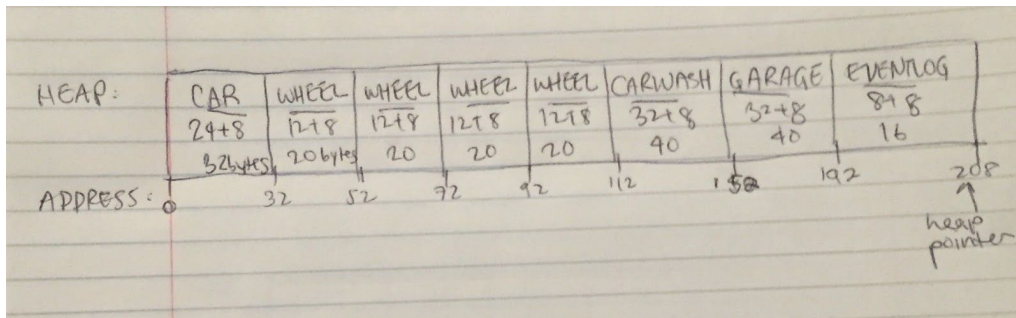 HEAP: CAR WHEEL WHEEL WHEEL WHEEL CARWASH GARAGE EVENTLOG
24+8 12+8 12+8 12+8 12+8 32+8 32+8 8+8
32bytes 20bytes 20 20 20 40 40 16
ADDRESS: 0 32 52 72 92 112 152 192 208
heap
pointer